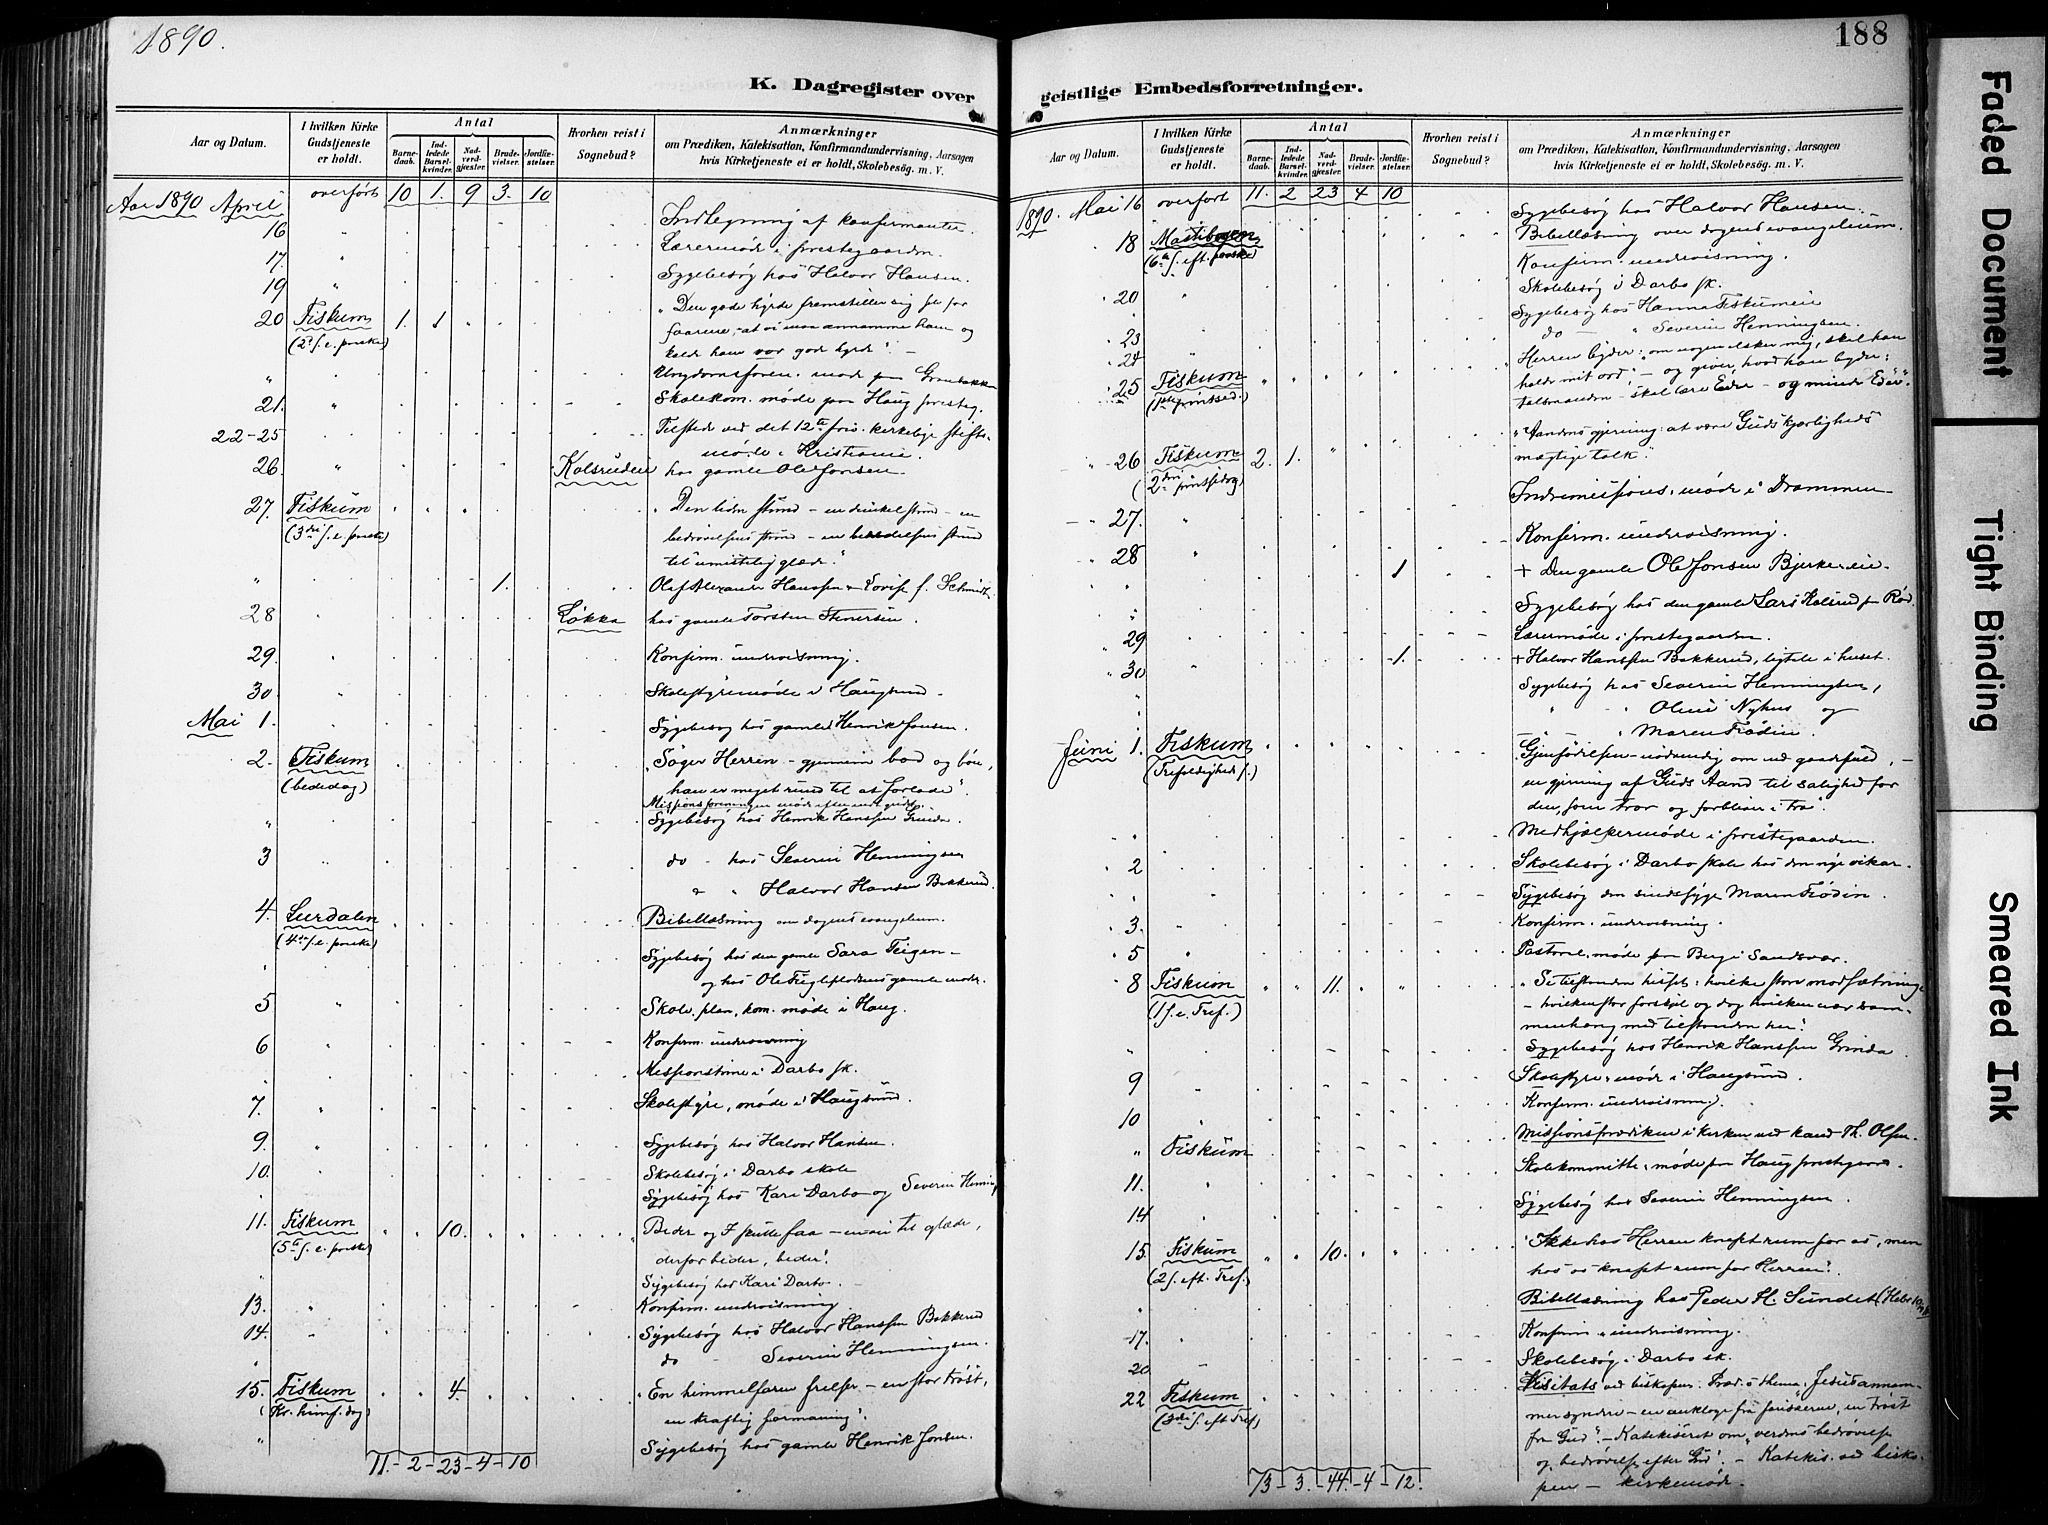 1890.
188
K. Dagregister over geistlige Embedsforretninger.
Aar og Datum.
I hvilken Kirke Gudstjeneste er holdt.
Antal
Barnedaab.
Indledede Barselkvinder.
Nadverdgjæster.
Brudevielser.
Jordfæstelser.
Hvorhen reist i Sognebud?
Anmærkninger
om Prædiken, Katekisation, Konfirmandundervisning, Aarsagen
hvis Kirketjeneste ei er holdt, Skolebesøg. m. V.
Aar 1890 April overført 10 1. 9 3. 10
16 Indlegning af konfirmanter.
17. Lærermøde i prestegaarden.
19 Sygebesøg hos Halvor Hansen.
20 Fiskum 1. 1 "Den gode hyrde fremstiller sig for
(2. s. e. paaske) faarene, at vi maa annamme ham og
kalde ham vor gode hyrde". -
" Ungdomsforen. møde paa
21. " Skolekom. møde paa Haug presteg.
22-25 Tilstede ved det 12te kirkelige stifts-
møde i Kristiania.
26 " Kolsrudeie hos gamle Ole Jonsen.
27. Fiskum "Den liden stund - en dunkel stund - en
(3die s. e. paaske) bedrøvelsens stund - en beredelsens stund
til umistelig glæde."
" 1. Olaf Alexander Hanssen & Lovise f. Schmidt.
28 Løkka hos gamle Torsten Stenersen.
29. Konfirm. undervisning.
30 Skolestyremøde i Haugsund.
Mai 1. Sygebesøg hos gamle Henrik Jonsen.
2. Fiskum "Søger Herren - gjennem bod og bøn,
(bededag) han er meget rund til at forlade".
Missionsforeningen møde efter endt gudstj.
" Sygebesøg hos Henrik Hanssen Grinda.
3 do - hos Severin Henningsen
" " Halvor Hansen Bakkerud.
4. Lurdalen Bibellæsning om dagens evangelium.
(4de s. e. paaske)
Sygebesøg hos den gamle Sara Teigen -
og hos Ole gamle moder.
5 " Skole. plan, kom. møde i Haug.
6 Konfirm. undervisning
Missionstime i Darbo sk.
7. " Skolestyre, møde i Haugsund.
9 " Sygebesøg hos Halvor Hansen.
10. Skolebesøg i Darbo skole
Sygebesøg hos Kari Darbo og Severin Henning
11. Fiskum 10. "Beder og I skulle faa - navn til glæde,
(5te s. e. paaske) derfor beder, beder!
" Sygebesøg hos Kari Darbo.
13. " Konfirm. undervisning
14. Sygebesøg hos Halvor Hanssen Bakkerud
" do - Severin Henningsen.
15. Fiskum 4. "En himmelfaren frelser - en stor trøst,
(Kr. himf. dag) en kraftig formaning".
" Sygebesøg hos gamle Henrik Jonsen.
11. - 2 - 23 - 4 - 10
1890. Mai 16 overført 11. 2 23 4 10 Sygebesøg hos Halvor Hansen.
18 Bibellæsning over dagens evangelium.
(6te s. eft. paaske)
20 Konfirm. undervisning.
Skolebesøg i Darbo sk.
23 Sygebesøg hos Hanna Fiskumeie
24 do - " Severin Henningsen.
25 Fiskum Herren byder: "om nogen elsker mig, skal han
(1ste pintsed.) holde mit ord", - og giver, hvad han byder:
talsmanden - skal lære Eder - og minde Eder".
26 Fiskum 2. 1. "Aandens gjerning: at være Guds kjærligheds
(2den pintsedag) mægtige tolk".
27. " Indremissions, møde i Drammen
28 " Konfirm. undervisning.
1 + Den gamle Ole Jonsen Bjerkeneie.
Sygebesøg hos den gamle Lars Kolsrud paa Rød
29 Lærermøde i prestegaarden.
30 1. + Halvor Hanssen Bakkerud, ligtale i huset.
Sygebesøg hos Severin Henningsen,
" " Oline Nyhus og
" " Maren Frødin.
Juni 1. Fiskum "Gjenfødelsen - nødvendig om end gaadefuld, -
(Trefoldigheds s.) en gjerning af Guds Aand til salighed for
den, som tror og forbliver i tro".
Medhjælpermøde i prestegaarden.
2 Skolebesøg i Darbo skole hos den nye vikar.
Sygebesøg den sindssyge Maren Frødin.
3. " Konfirm. undervisning.
5 Pastoral, møde paa Berg i Sandsvær.
8 Fiskum 11. "Se tilstanden hisset: hvilke store modsætninger
(1 s. e. Tref.) - hvilken stor forskjel og dog hvilken nær sam-
menhæng med tilstanden her".
" Sygebesøg hos Henrik Hanssen Grinda.
9 " Skolestyre, møde i Haugsund.
10 " Konfirm. undervisning.
" Fiskum Missionsprædiken i kirken ved kand. Th. Olsen.
11. " Skolekommitte, møde paa Haug prestegaard.
14 " Sygebesøg hos Severin Henningsen.
15. Fiskum 10. "Ikke hos Herren knapt rum for os, men
(2 s. eft. Tref.) hos os knapt rum for Herren".
" Bibellæsning hos Peder H. Sundet (Hebr 10,
17. " Konfirm. undervisning.
20 " Skolebesøg i Darbo sk.
22 Fiskum Visitats ved biskopen. Præd. o thema "Jesus annam-
(3die s. eft Tref) mer syndere - en anklage fra fariseerne, en trøst
fra Gud". - Katekiseret om "verdens bedrøvelse
og bedrøvelse efter Gud". - Katekis. ved bisko-
pen - kirkemøde.
13 - 3. - 44. - 4 - 12.
Faded Document
Tight Binding
Smeared Ink